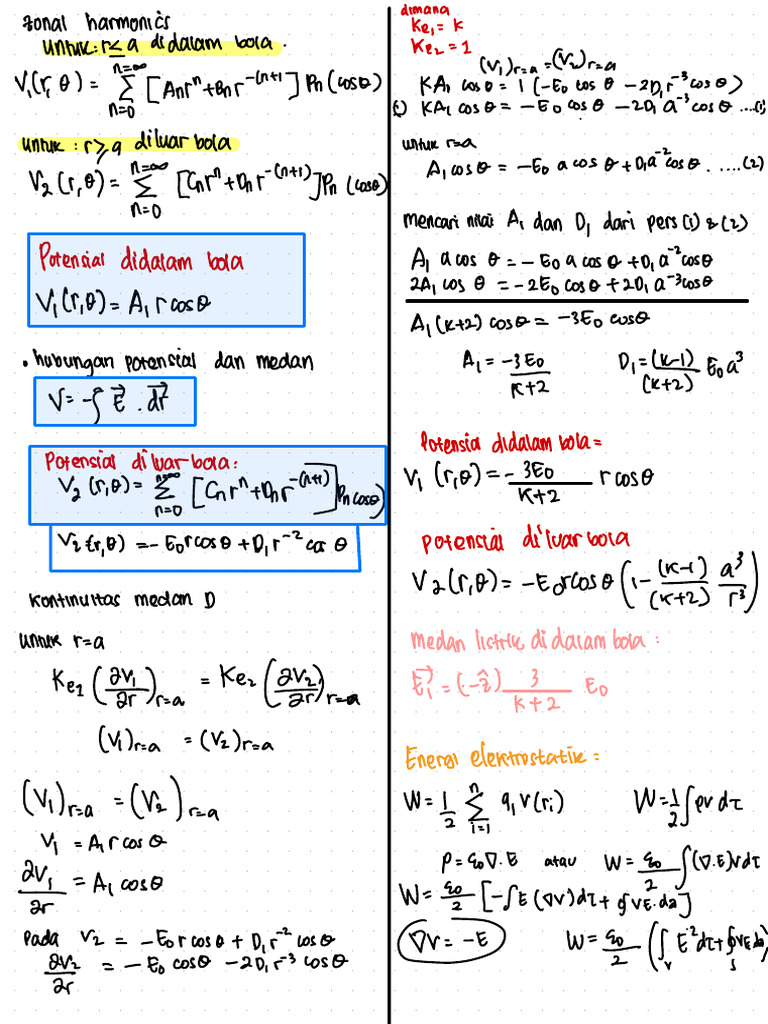 zonal harmonics
untuk: r ≤ a didalam bola.
V₁(r, θ) = Σ_{n=0}^{n=∞} [Anrⁿ + Bnr^{-(n+1}] Pn (cosθ)
untuk : r ⩾ a diluar bola
V₂(r, θ) = Σ_{n=0}^{n=∞} [Cnrⁿ + Dn r^{-(n+1)}] Pn (cosθ)
Potensial didalam bola
V₁(r,θ) = A₁ r cosθ
• hubungan potensial dan medan
V = -∫ E⃗ . dr⃗
Potensial diluar bola:
V₂ (r,θ) = Σ_{n=0}^{n=∞} [Cn rⁿ + Dn r^{-(n+1)}] Pn cosθ)
V₂(r,θ) = -E₀ r cosθ + D₁ r⁻² cos θ
kontinuitas medan D
untuk r=a
Ke₁ (∂V₁/∂r)_{r=a} = Ke₂ (∂V₂/∂r)_{r=a}
(V₁)_{r=a} = (V₂)_{r=a}
(V₁)_{r=a} = (V₂)_{r=a}
V₁ = A₁ r cos θ
∂V₁/∂r = A₁ cosθ
Pada V₂ = -E₀ r cosθ + D₁ r⁻² cosθ
∂V₂/∂r = -E₀ cosθ - 2D₁ r⁻³ cosθ
dimana
Ke₁ = K
Ke₂ = 1
(V₁)_{r=a} = (V₂)_{r=a}
KA₁ cosθ = 1 (-E₀ cosθ - 2D₁ r⁻³ cosθ)
KA₁ cosθ = -E₀ cosθ - 2D₁ a⁻³ cosθ ....(1)
untuk r=a
A₁ cosθ = -E₀ a cosθ + D₁ a⁻² cosθ. ....(2)
mencari nilai A₁ dan D₁ dari pers (1) & (2)
A₁ a cos θ = -E₀ a cosθ + D₁ a⁻² cosθ
2A₁ cos θ = -2E₀ cosθ + 2D₁ a⁻³ cosθ
A₁ (K+2) cosθ = -3E₀ cosθ
A₁ = -3E₀/K+2 D₁ = (K-1)/(K+2) E₀ a³
Potensial didalam bola =
V₁ (r,θ) = -3E₀/K+2 r cosθ
potensial diluar bola
V₂(r,θ) = -E₀ r cosθ (1 - (K-1)/(K+2) a³/r³)
medan listrik didalam bola :
E₁⃗ = (-ẑ) 3/K+2 E₀
Energi elektrostatik =
W = 1/2 Σ_{i=1}^{n} q₁ V(ri) W = 1/2 ∫ ρv dτ
ρ = ε₀ ∇. E atau W = ε₀/2 ∫ (∇.E) V dτ
W = ε₀/2 [-∫ E (∇V) dτ + ∮ VE. da]
∇V = -E W = ε₀/2 (∫_v E² dτ + ∮_s VE da)